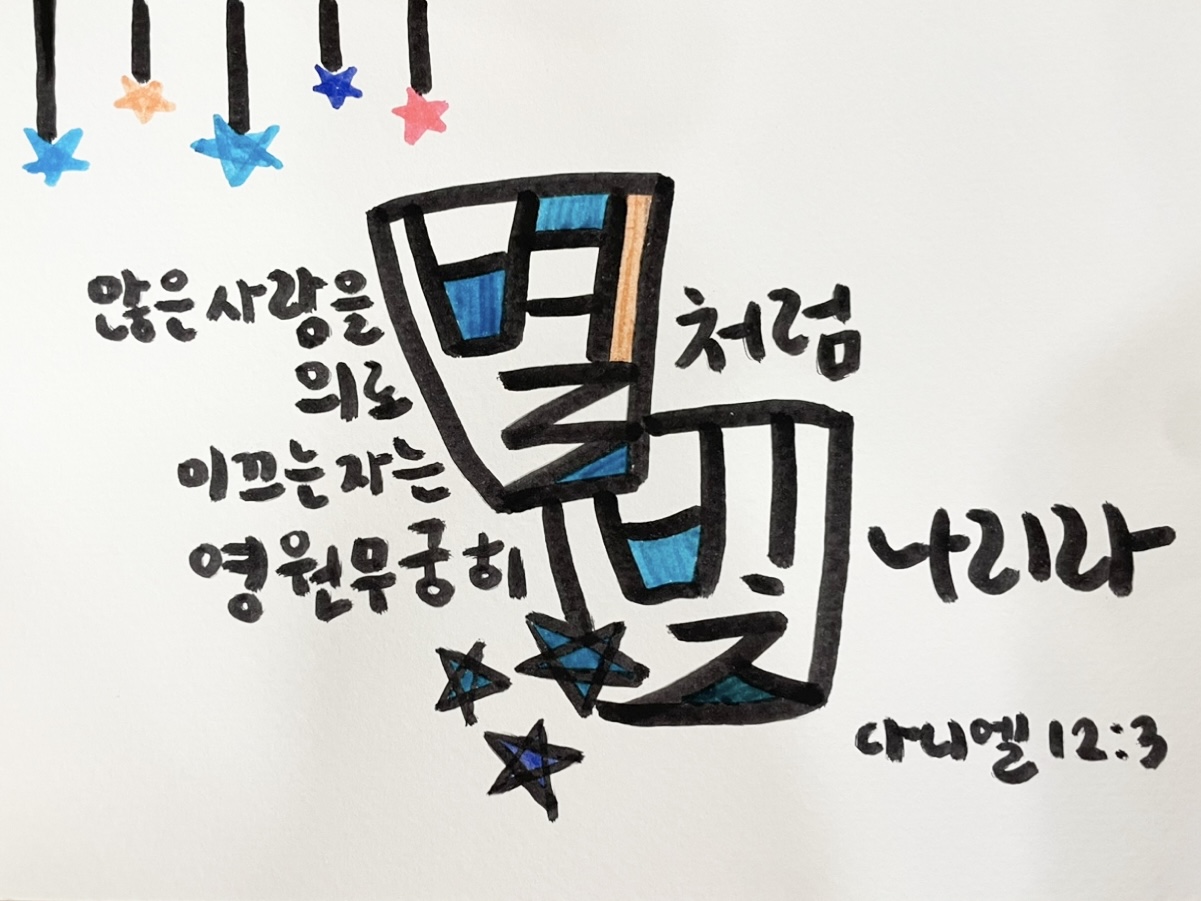 많은 사람을
의로
이끄는 자는
영원무궁히
별처럼
빛나리라
다니엘 12:3